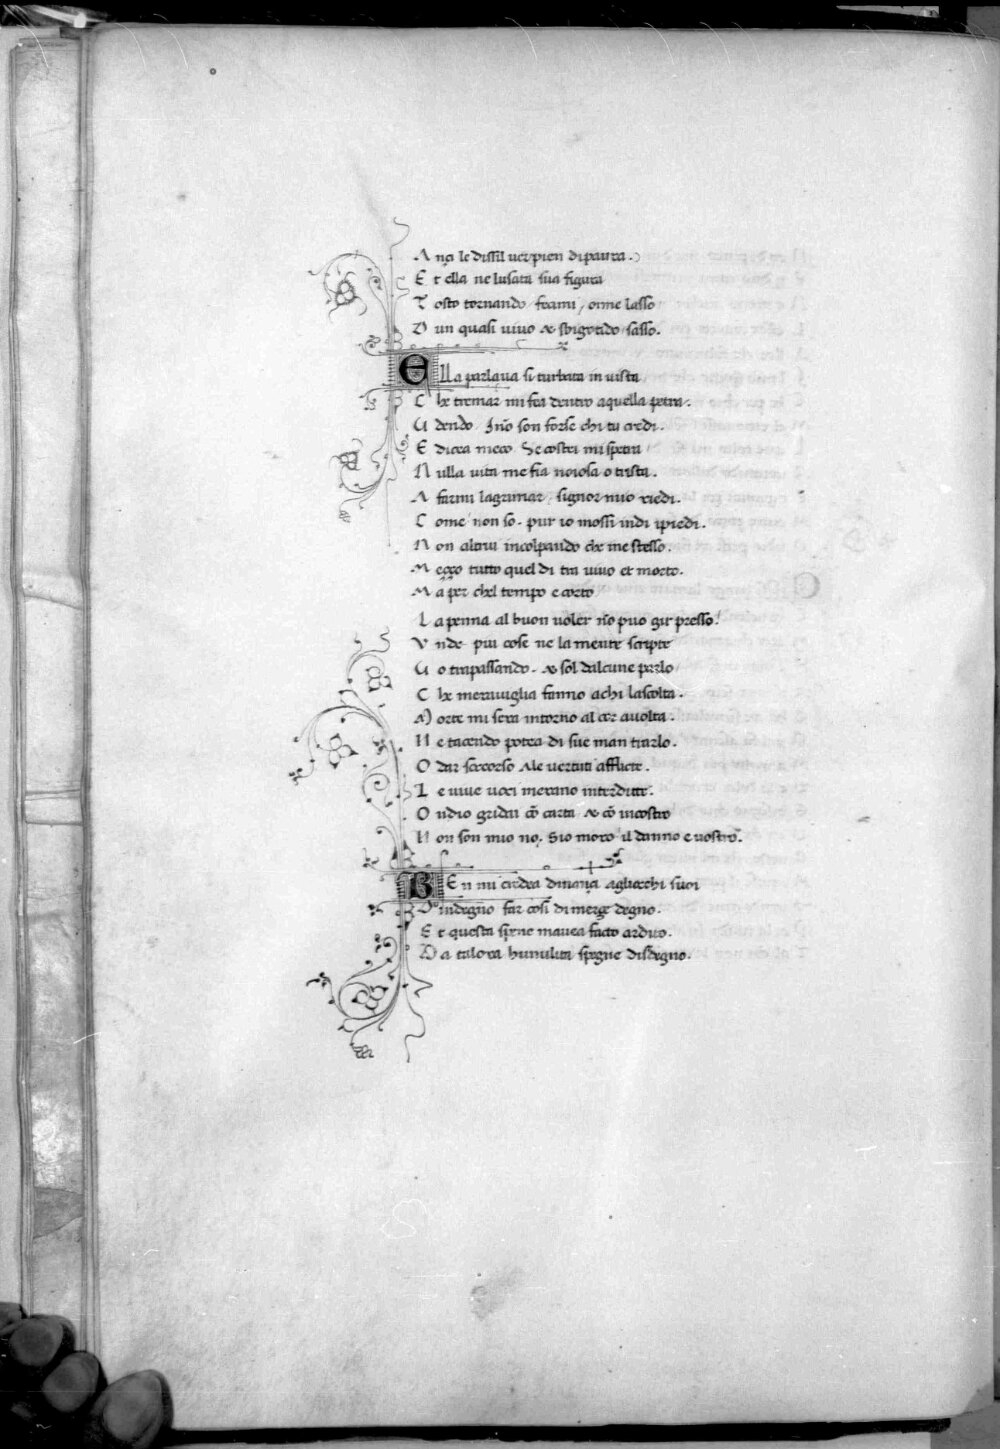 A nçi le dissil ver pien di paura.
E t ella ne lusata sua figura
T osto tornando fecemi / oime lasso
D un quasi vivo & sbigotido sasso.
E lla parlava si turbata in vista
C he tremar mi fea dentro a quella petra.
U dendo. I nõ son forse chi tu credi.
E dicea meco. Se costei mi spetra
N ulla vita me fia noiosa o trista.
A farmi lagrimar / signor mio riedi.
C ome non so. pur io mossi indi ipiedi.
N on altrui incolpando che me stesso.
M eçço tutto quel di tra vivo et morto.
M a per chel tempo e corto
L a penna al buon voler nõ puo gir presso.
U nde piu cose ne la mente scripte
U o trapassando. & sol dalcune parlo
C he meraviglia fanno a chi lascolta.
M orte mi sera intorno al cor avolta.
N e tacendo potea di sue man trarlo.
O dar soccorso a le vertuti afflicte.
L e vive voci merano interditte.
O ndio gridai cõ carta & cõ incostro
N on son mio no. Sio moro il danno e vostro.
B En mi credea dinançi agliocchi suoi
D indegno far cosi di merçe degno.
E t questa spene mavea facto ardito.
M a talora humilita spegne disdegno.